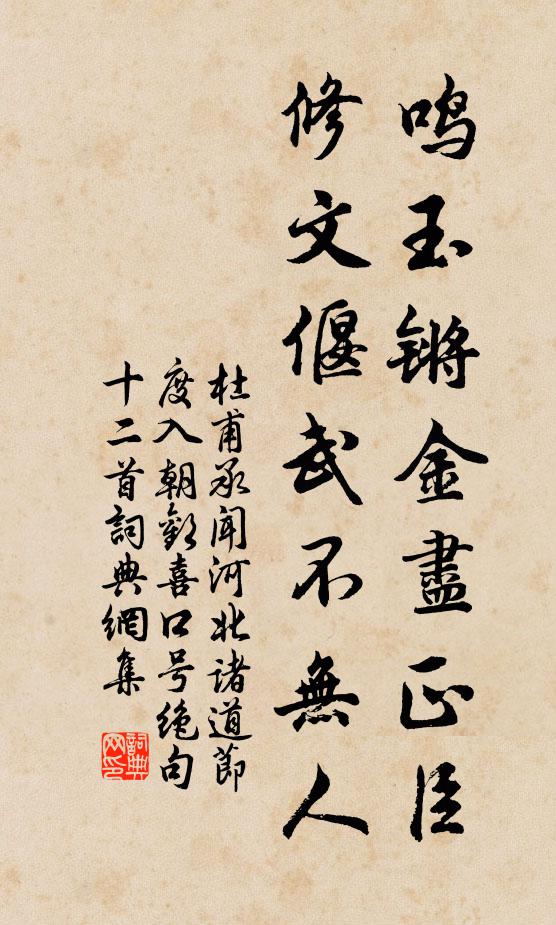 鳴玉锵金盡正臣
修文偃武不無人
杜甫承闻河北诸道節
度入朝歡喜口号絶句
十二首詞典網集
詞典
网印